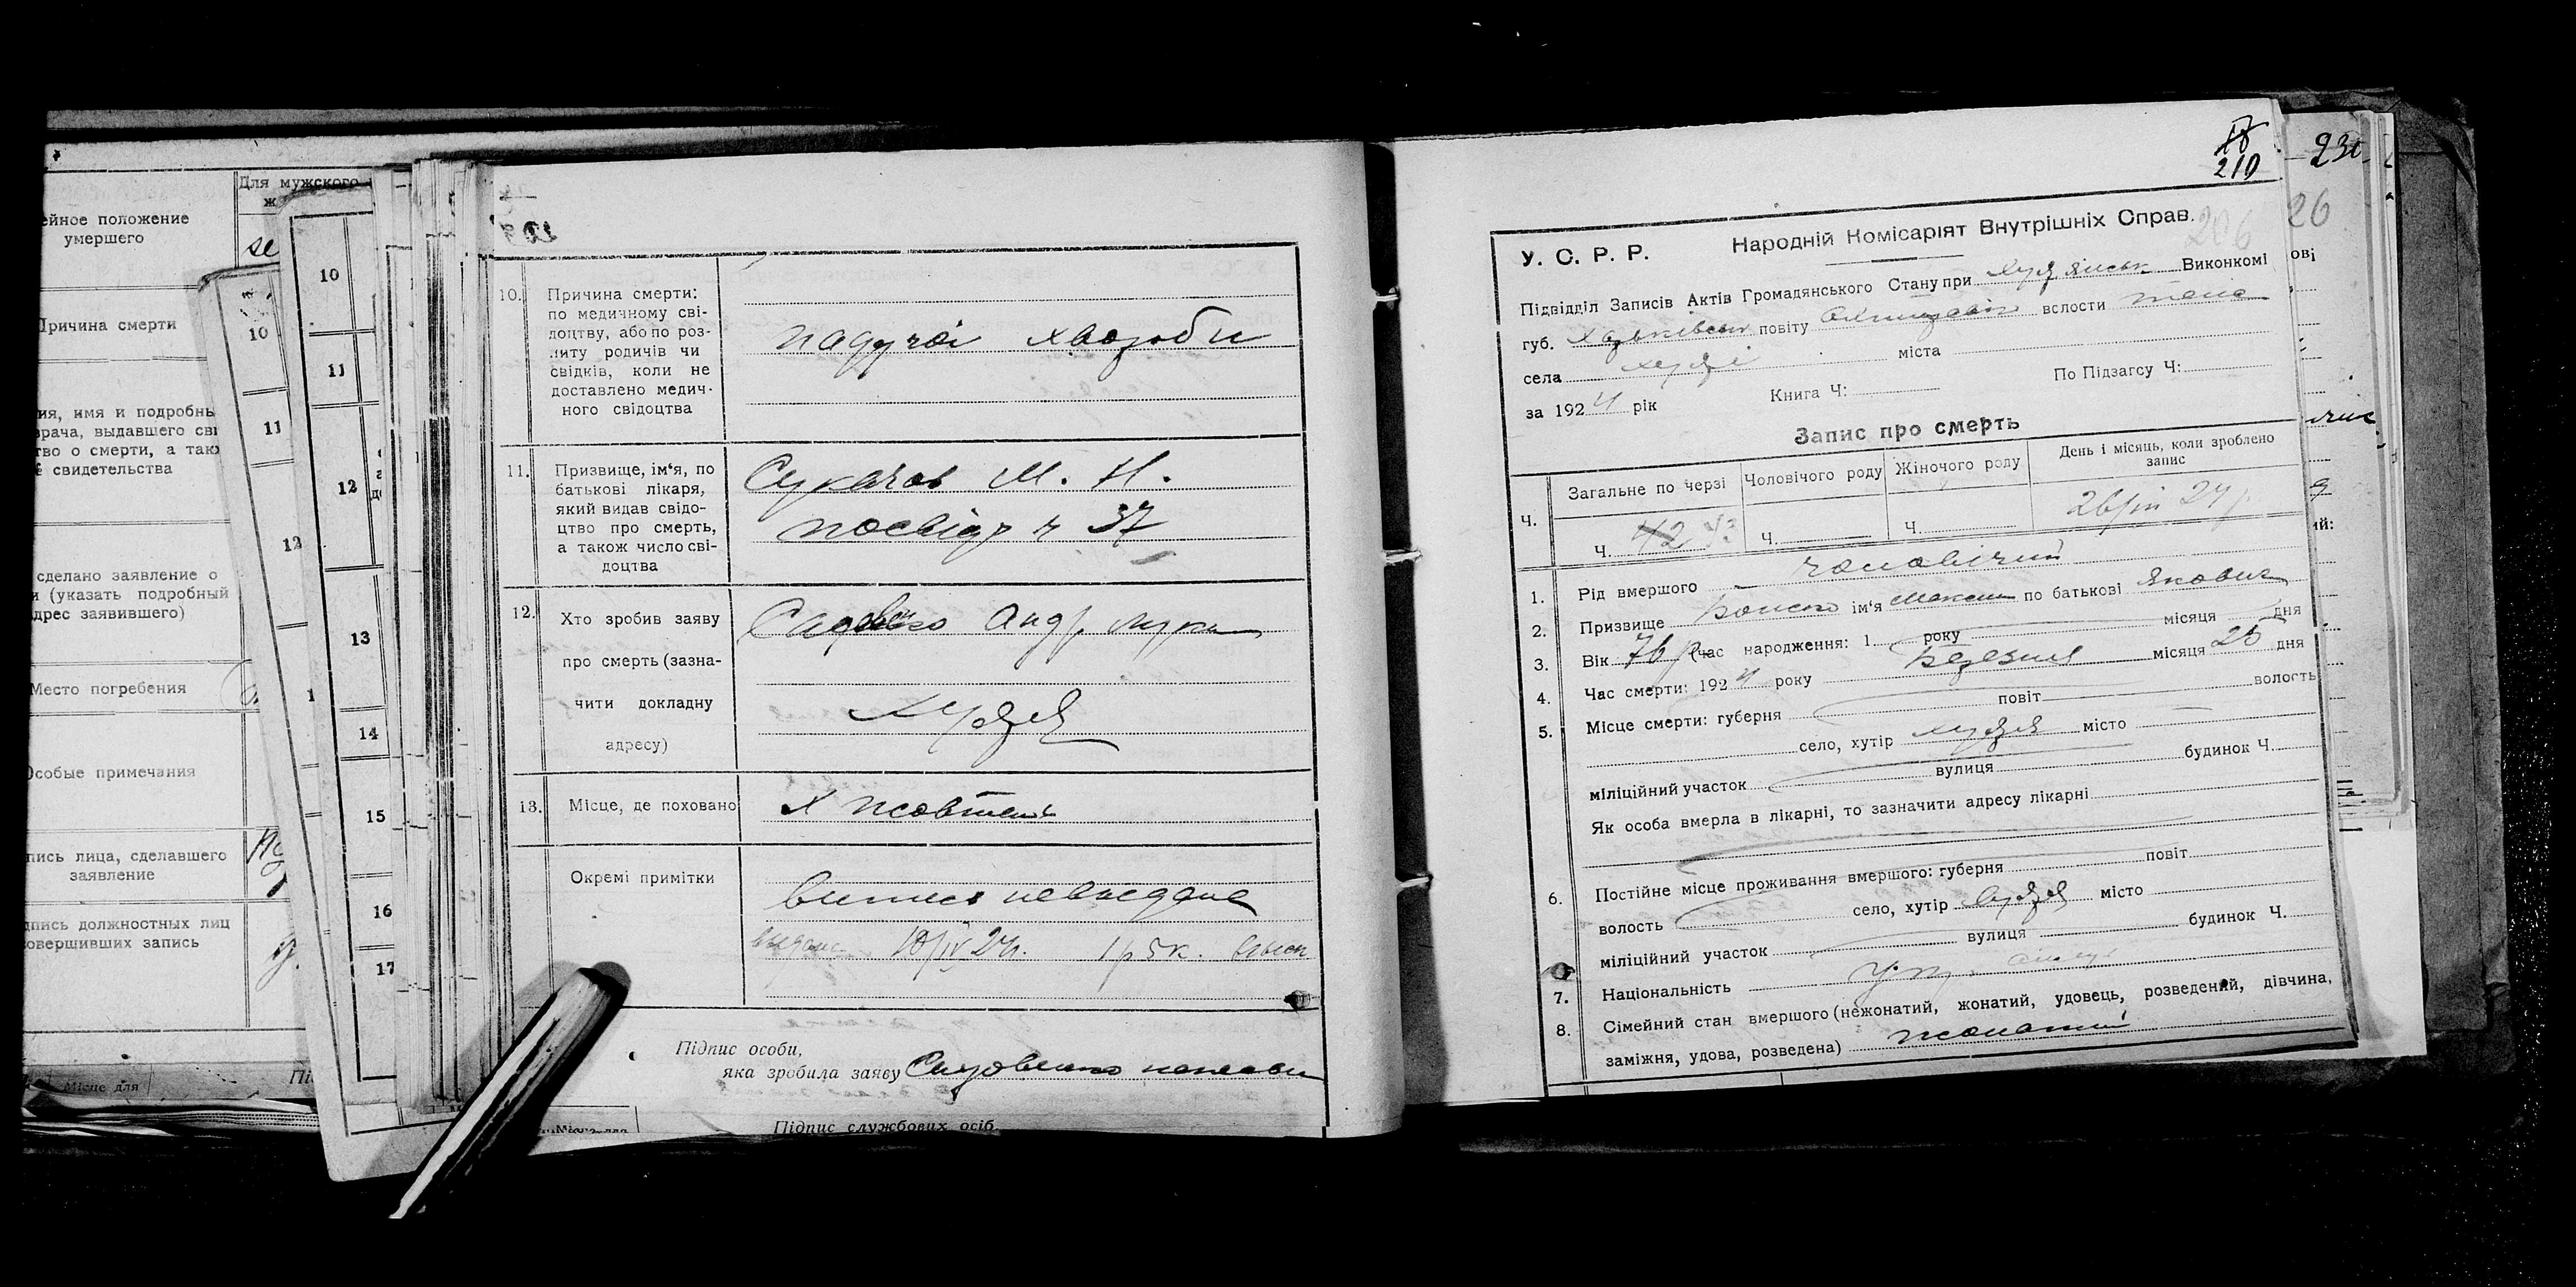 Для мужского
ж
ейное положение
умершего
Причина смерти
ия, имя и подробны
врача, выдавшего сви
тво о смерти, а такж
№ свидетельства
сделано заявление о
и (указать подробный
адрес заявившего)
Место погребения
Особые примечания
пись лица, сделавшего
заявление
дпись должностных лиц
совершивших запись
Місце для
10
11
12
10
11
12
13
14
15
16
17
10. Причина смерти:
по медичному сві-
доцтву, або по роз-
питу родичів чи
свідків, коли не
доставлено медич-
ного свідоцтва
падучої хвороби
11. Призвище, ім‘я, по
батькові лікаря,
який видав свідо-
цтво про смерть,
а також число сві-
доцтва
Сукачов М. Н.
посвідч ч 37
12. Хто зробив заяву
про смерть (зазна-
чити докладну
адресу)
Садовско Анд.
Худя
13. Місце, де поховано
Х
Окремі примітки
випись невидана
видано 10/IV 24р. 1р 5к.
Підпис особи,
яка зробила заяву Садовенко
Підпис службових осіб
Місце для
18
210
230
206
26
У. С. Р. Р. Народній Комісаріят Внутрішніх Справ.
Підвідділ Записів Актів Громадянського Стану при Виконкомі
губ. Харківськ повіту волости
села Худя міста
за 1924 рік Книга Ч: По Підзагсу Ч:
Запис про смерть
Ч. Загальне по черзі Чоловічого роду Жіночого роду День і місяць, коли зроблено
запис
Ч. 42 43 Ч. Ч. 26/III 24 р.
1. Рід вмершого чоловічий
2. Призвище ім‘я Максим по батькові Якович
3. Вік 76 р (час народження: 1 року місяця дня
4. Час смерти: 1924 року Березня місяця 25 дня
5. Місце смерти: губерня повіт волость
село, хутір Худя місто
міліційний участок вулиця будинок Ч.
Як особа вмерла в лікарні, то зазначити адресу лікарні
6. Постійне місце проживання вмершого: губерня повіт
волость село, хутір Худя місто
міліційний участок вулиця будинок Ч.
7. Національність Укр.
8. Сімейний стан вмершого (нежонатий, жонатий, удовець, розведений, дівчина,
заміжня, удова, розведена) жонатий